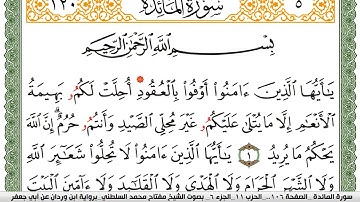 ١٢٠ سُورَةُ المَائِدَةِ ٥
بِسْمِ اللَّهِ الرَّحْمَٰنِ الرَّحِيمِ
يَٰأَيُّهَا الَّذِينَ ءَامَنُوا أَوْفُوا بِالْعُقُودِ أُحِلَّتْ لَكُمُو بَهِيمَةُ
الْأَنْعَٰمِ إِلَّا مَا يُتْلَىٰ عَلَيْكُمُو غَيْرَ مُحِلِّي الصَّيْدِ وَأَنتُمُو حُرُمٌ إِنَّ اللَّهَ
يَحْكُمُ مَا يُرِيدُ ١ يَٰأَيُّهَا الَّذِينَ ءَامَنُوا لَا تُحِلُّوا شَعَٰٓئِرَ اللَّهِ
وَلَا الشَّهْرَ الْحَرَامَ وَلَا الْهَدْيَ وَلَا الْقَلَٰٓئِدَ وَلَا ءَآمِّينَ الْبَيْتَ
سورة المائدة _ الصفحة ١٠٦... الحزب ١١_الجزء ٦_ بصوت الشيخ مفتاح محمد السلطني _برواية ابن وردان عن أبي جعفر